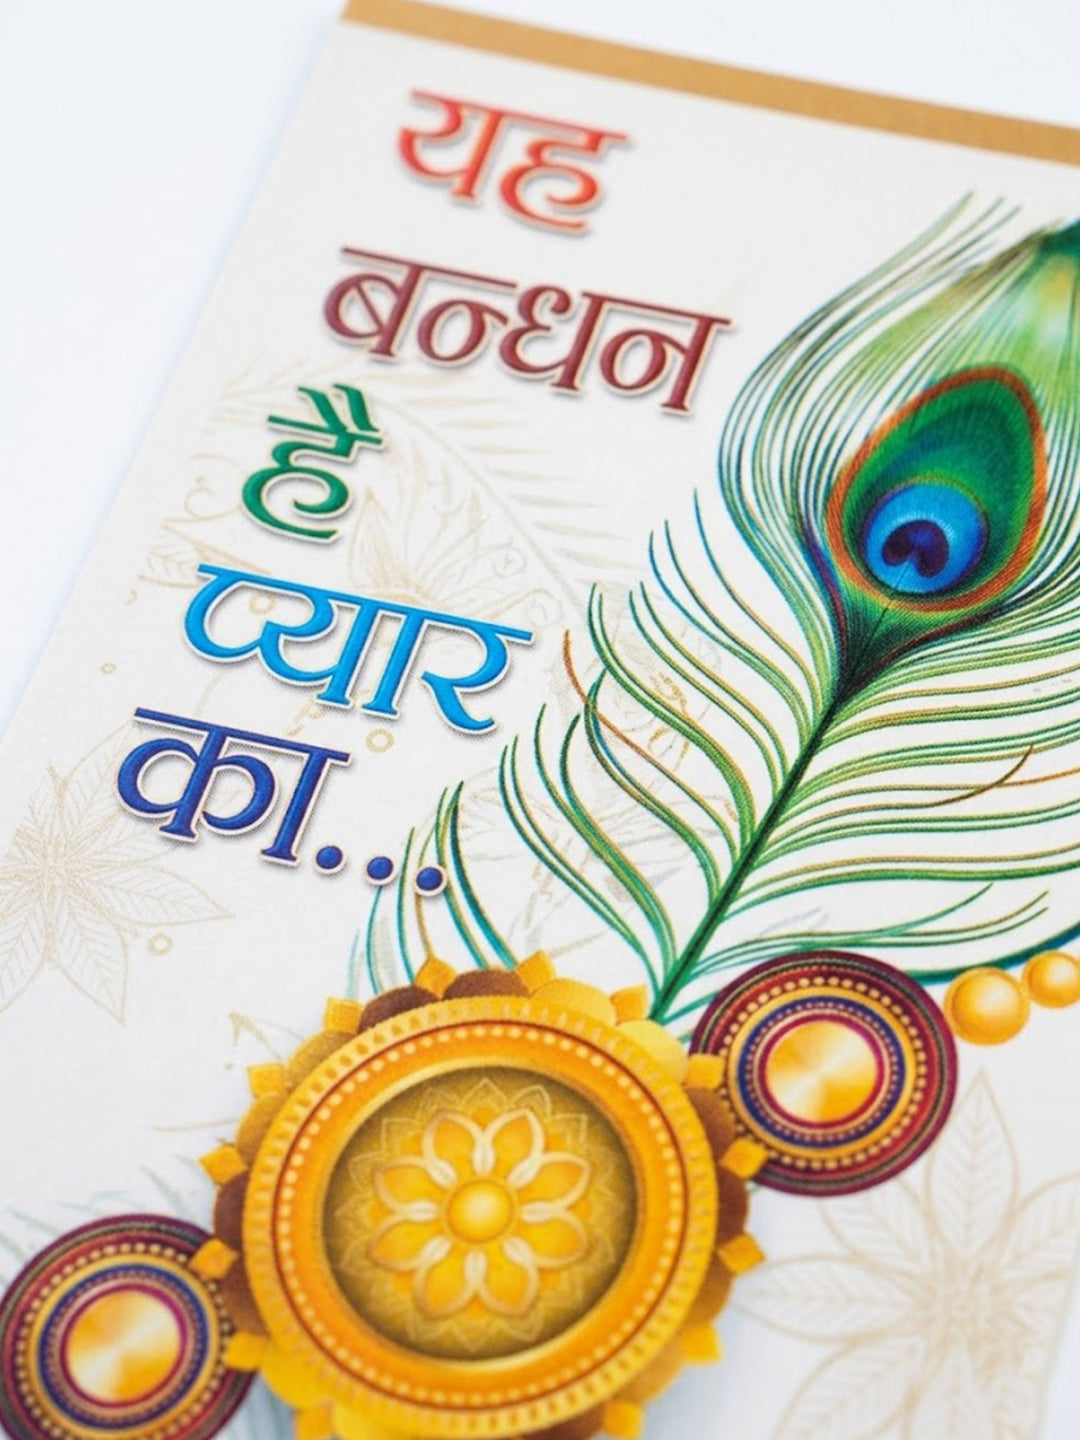 यह
बन्धन
है
प्यार
का...